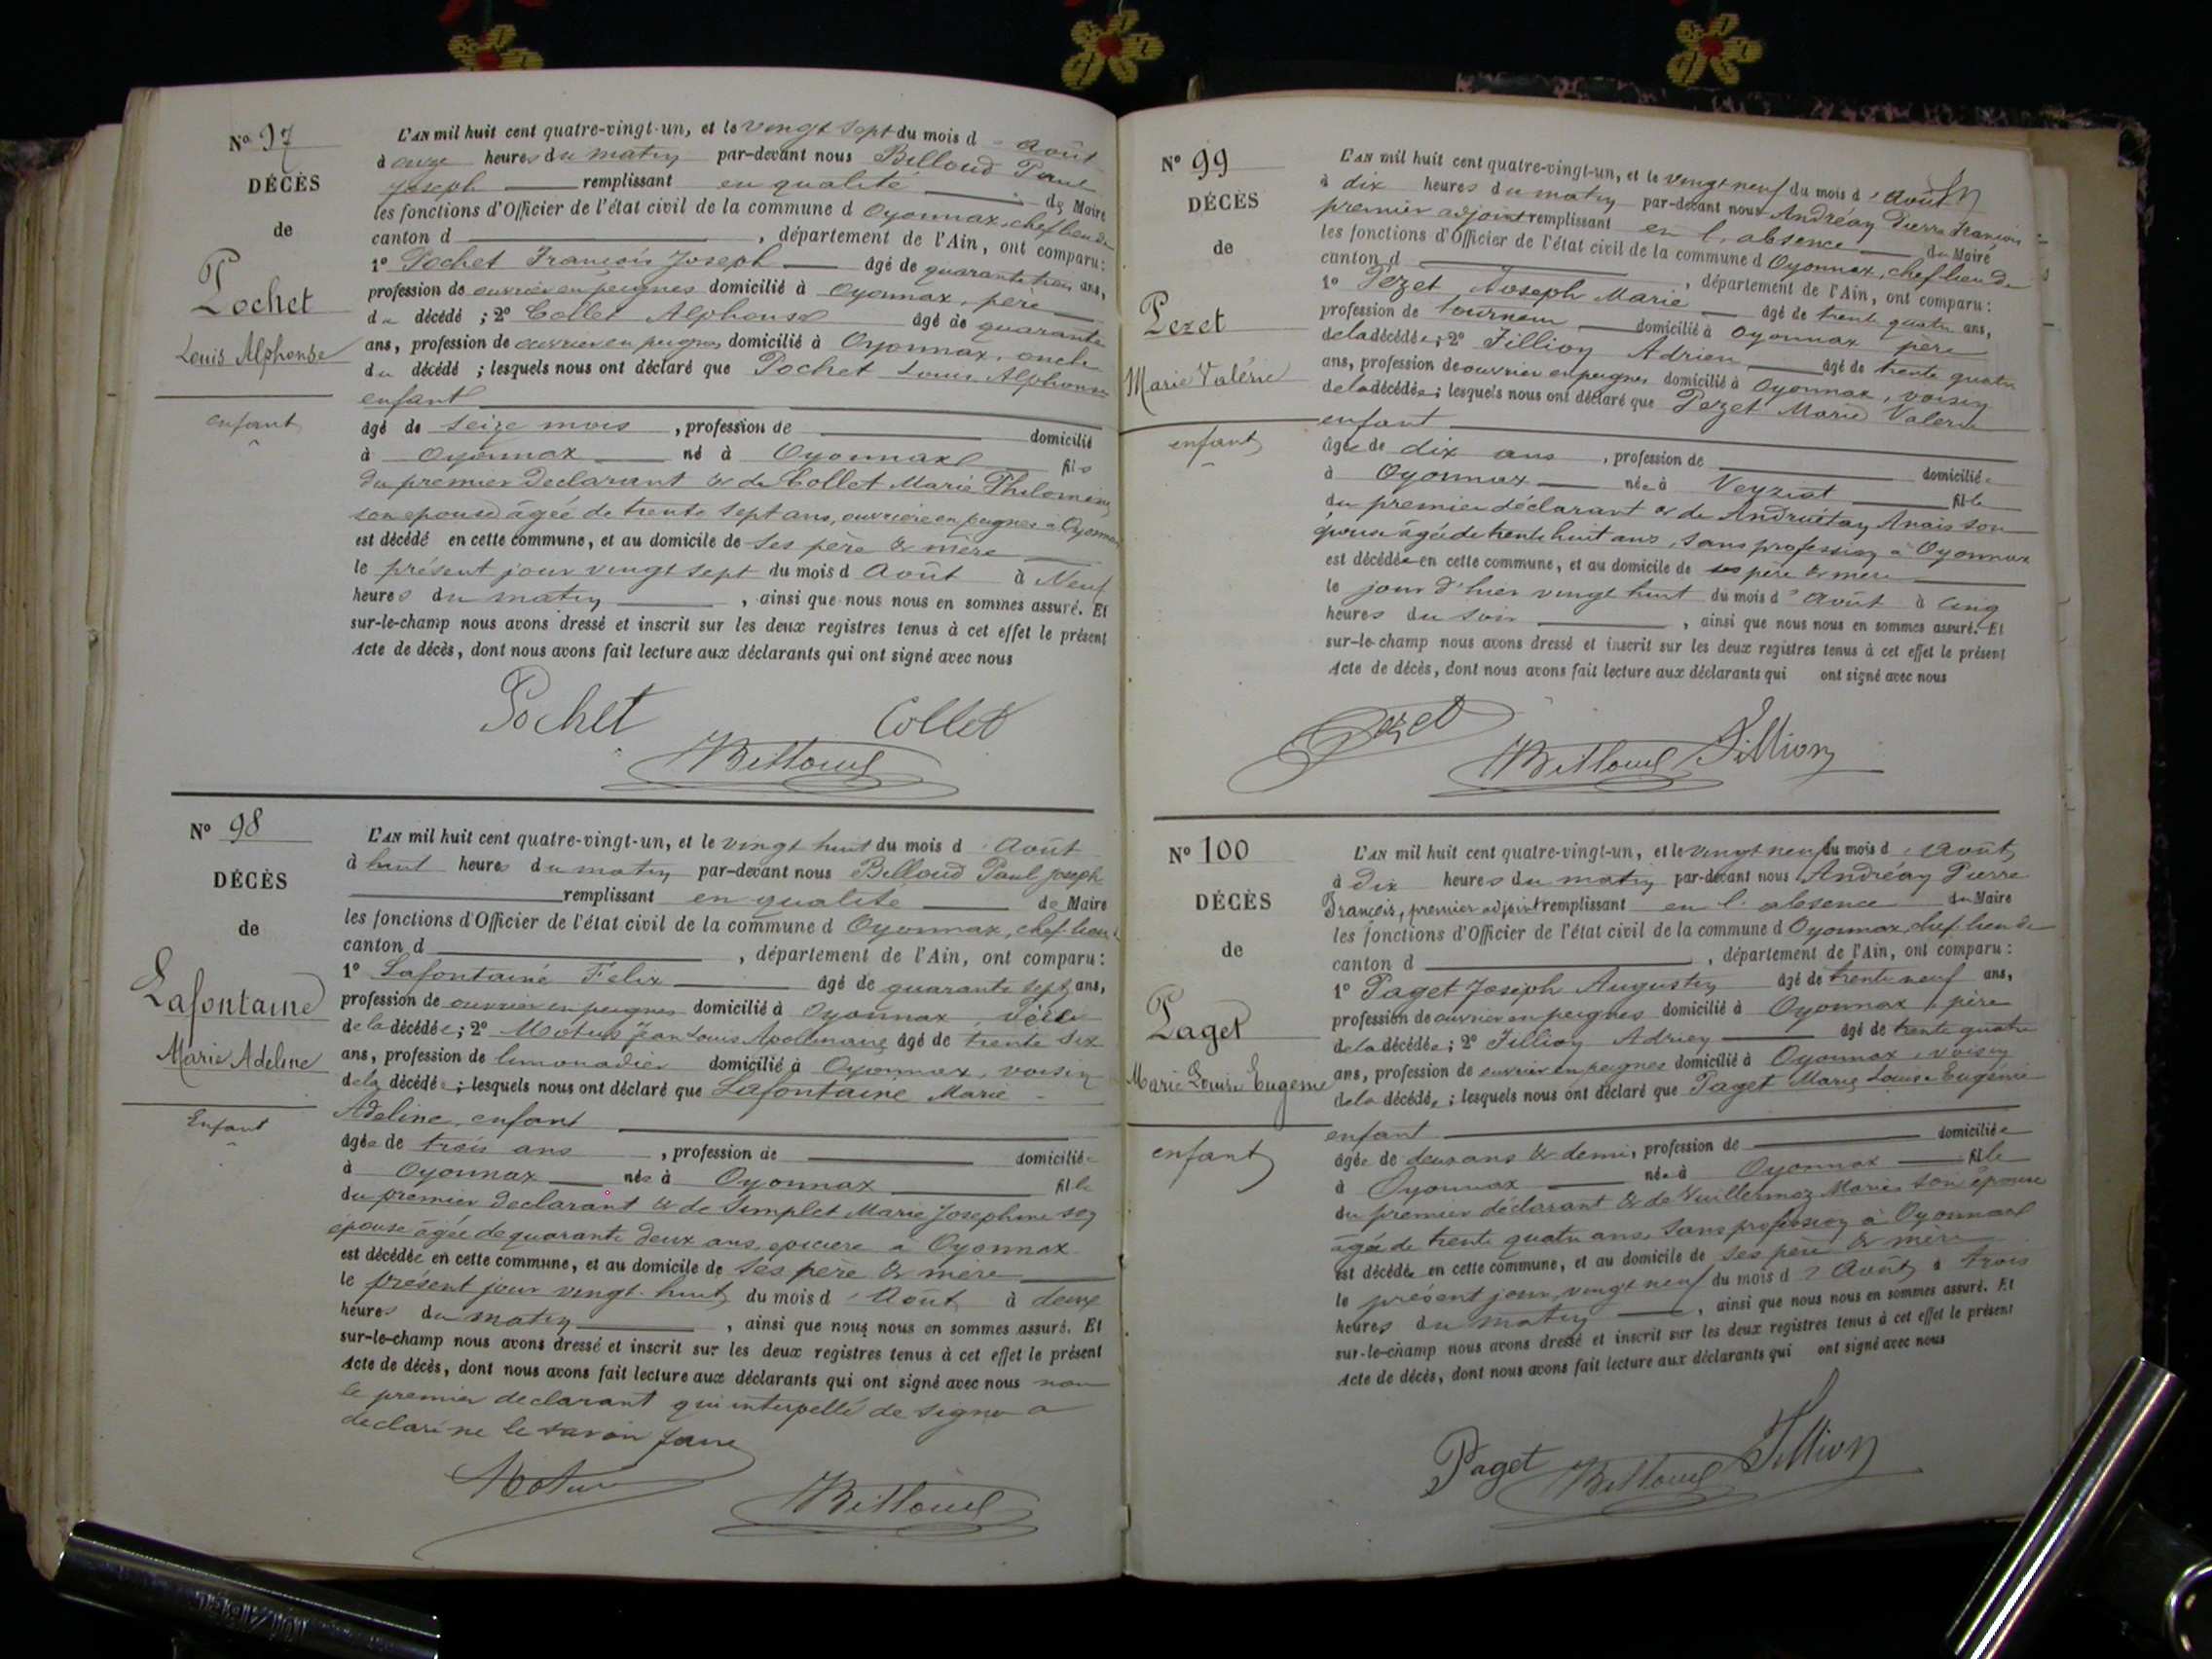 No 97
DÉCÈS
de
Pochet
Louis Alphonse
enfant
L'AN mil huit cent quatre-vingt-un, et le vingt sept du mois d'Août
à onze heures du matin par-devant nous Billoud Paul
Joseph remplissant en qualité de Maire
les fonctions d'Officier de l'état civil de la commune d'Oyonnax, chef lieu de
canton d , département de l'Ain, ont comparu:
1° Pochet François Joseph âgé de quarante trois ans,
profession de ouvrier en peignes domicilié à Oyonnax, père
du décédé ; 2° Collet Alphonse âgé de quarante
ans, profession de ouvrier en peignes domicilié à Oyonnax, oncle
du décédé ; lesquels nous ont déclaré que Pochet Louis Alphonse
enfant
âgé de seize mois , profession de domicilié
à Oyonnax né à Oyonnax fils
du premier déclarant & de Collet Marie Philomène
son épouse âgée de trente sept ans, ouvrière en peignes à Oyonnax
est décédé en cette commune, et au domicile de ses père & mère
le présent jour vingt sept du mois d Août à Neuf
heures du matin , ainsi que nous nous en sommes assuré. Et
sur-le-champ nous avons dressé et inscrit sur les deux registres tenus à cet effet le présent
Acte de décès, dont nous avons fait lecture aux déclarants qui ont signé avec nous
Pochet Collet
Billoud
No 98
DÉCÈS
de
Lafontaine
Marie Adeline
Enfant
L'AN mil huit cent quatre-vingt-un, et le vingt huit du mois d'Août
à huit heures du matin par-devant nous Billoud Paul Joseph
remplissant en qualité de Maire
les fonctions d'Officier de l'état civil de la commune d Oyonnax, chef-lieu
canton d , département de l'Ain, ont comparu:
1° Lafontaine Félix âgé de quarante sept ans,
profession de ouvrier en peignes domicilié à Oyonnax, père
de la décédée; 2° Jean Louis Apollinaire âgé de trente six
ans, profession de limonadier domicilié à Oyonnax, voisin
de la décédée ; lesquels nous ont déclaré que Lafontaine Marie
Adeline, enfant
âgée de trois ans , profession de domiciliée
à Oyonnax née à Oyonnax fille
du premier déclarant & de Simplet Marie Josephine son
épouse âgée de quarante deux ans, épicière à Oyonnax
est décédée en cette commune, et au domicile de ses père & mère
le présent jour vingt-huit du mois d'Août à deux
heures du matin , ainsi que nous nous en sommes assuré. Et
sur-le-champ nous avons dressé et inscrit sur les deux registres tenus à cet effet le présent
Acte de décès, dont nous avons fait lecture aux déclarants qui ont signé avec nous non
le premier déclarant qui interpellé de signer a
déclaré ne le savoir faire
Billoud
No 99
DÉCÈS
de
Pezet
Marie Valérie
enfant
L'AN mil huit cent quatre-vingt-un, et le vingt neuf du mois d'Août
à dix heures du matin par-devant nous Andréan Pierre François
premier adjoint remplissant en l'absence du Maire
les fonctions d'Officier de l'état civil de la commune d Oyonnax, chef lieu de
canton d , département de l'Ain, ont comparu:
1° Pezet Joseph Marie âgé de trente quatre ans,
profession de tourneur domicilié à Oyonnax père
de la décédée; 2° Fillion Adrien âgé de trente quatre
ans, profession de ouvrier en peignes domicilié à Oyonnax, voisin
de la décédée; lesquels nous ont déclaré que Pezet Marie Valérie
enfant
âgée de dix ans , profession de domiciliée
à Oyonnax née à Veyziat fille
du premier déclarant & de Andruétan Anais son
épouse âgée de trente huit ans, sans profession à Oyonnax
est décédée en cette commune, et au domicile de ses père & mère
le jour d'hier vingt huit du mois d'Août à cinq
heures du soir , ainsi que nous nous en sommes assuré. Et
sur-le-champ nous avons dressé et inscrit sur les deux registres tenus à cet effet le présent
Acte de décès, dont nous avons fait lecture aux déclarants qui ont signé avec nous
Pezet Billoud Fillion
No 100
DÉCÈS
de
Paget
Marie Louise Eugénie
enfant
L'AN mil huit cent quatre-vingt-un, et le vingt neuf du mois d'Août
à dix heures du matin par-devant nous Andréan Pierre
François, premier adjoint remplissant en l'absence du Maire
les fonctions d'Officier de l'état civil de la commune d Oyonnax, chef-lieu de
canton d , département de l'Ain, ont comparu:
1° Paget Joseph Augustin âgé de trente neuf ans,
profession de ouvrier en peignes domicilié à Oyonnax, père
de la décédée; 2° Fillion Adrien âgé de trente quatre
ans, profession de ouvrier en peignes domicilié à Oyonnax, voisin
de la décédée ; lesquels nous ont déclaré que Paget Marie Louise Eugénie
enfant
âgée de deux ans & demi, profession de domiciliée
à Oyonnax née à Oyonnax fille
du premier déclarant & de Vuillermoz Marie son épouse
âgée de trente quatre ans, sans profession à Oyonnax
est décédée en cette commune, et au domicile de ses père & mère
le présent jour, vingt neuf du mois d'Août à trois
heures du matin , ainsi que nous nous en sommes assuré. Et
sur-le-champ nous avons dressé et inscrit sur les deux registres tenus à cet effet le présent
Acte de décès, dont nous avons fait lecture aux déclarants qui ont signé avec nous
Paget Billoud Fillion